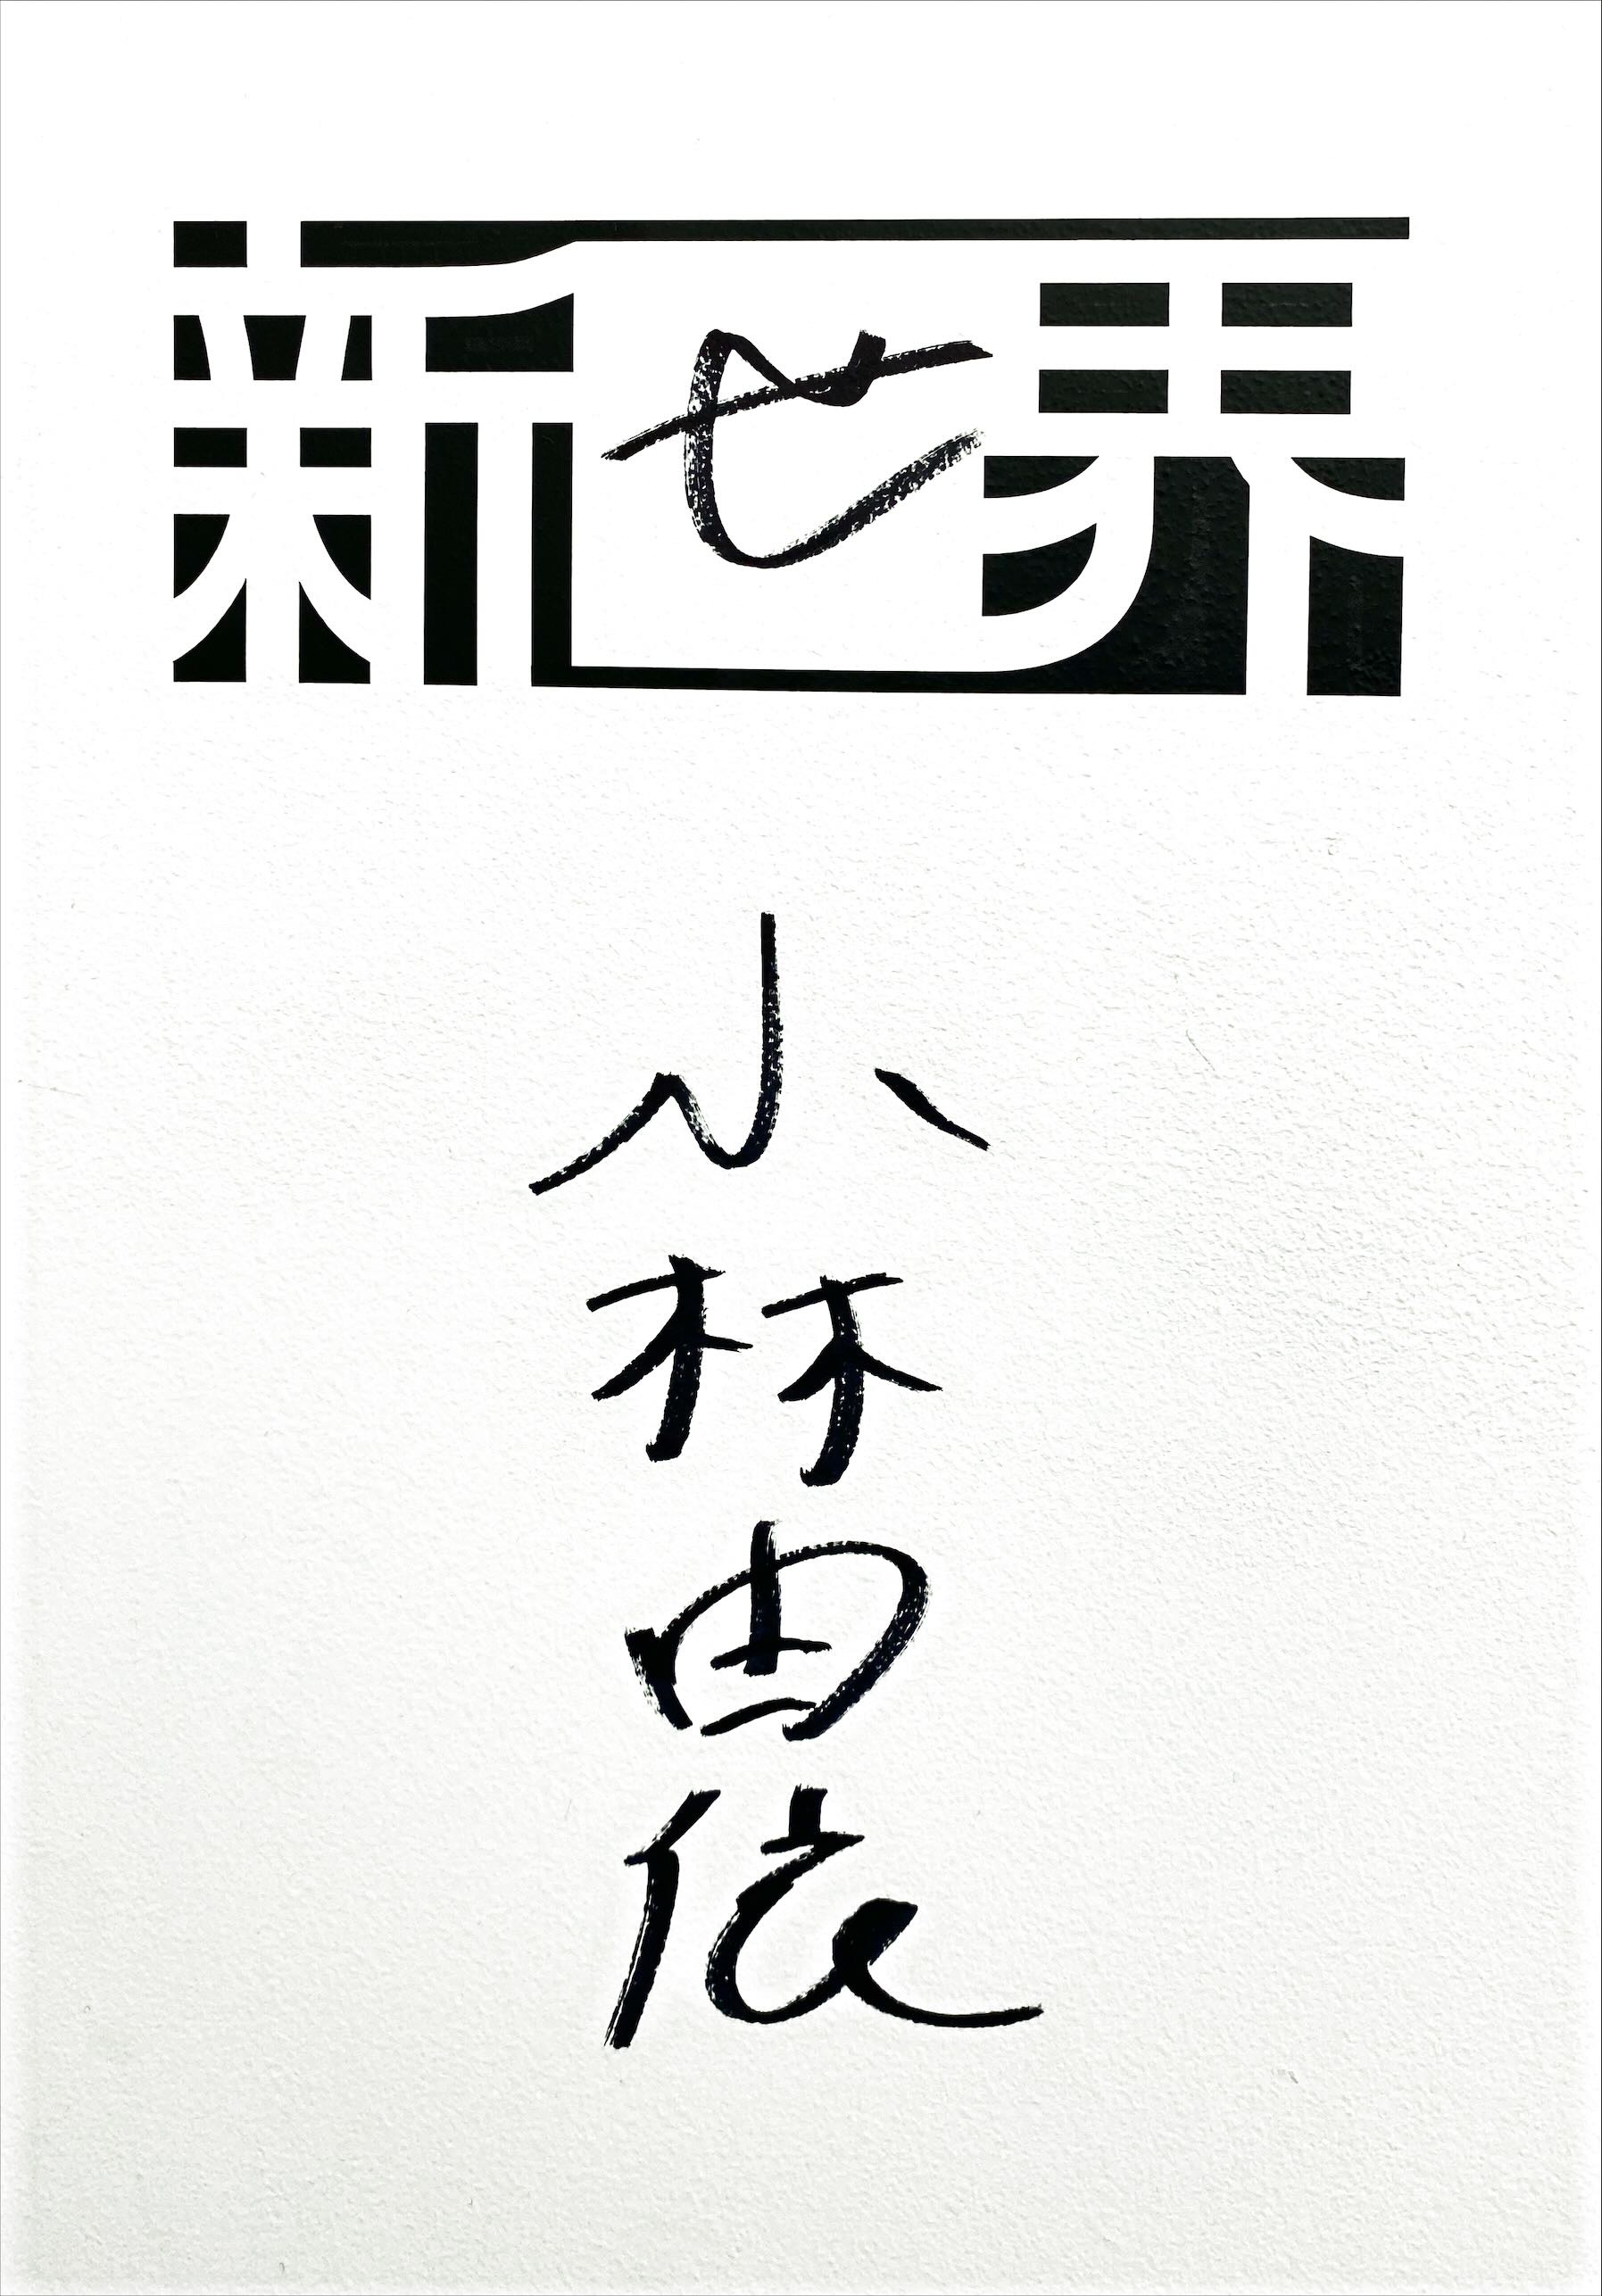 新世界
小林由依